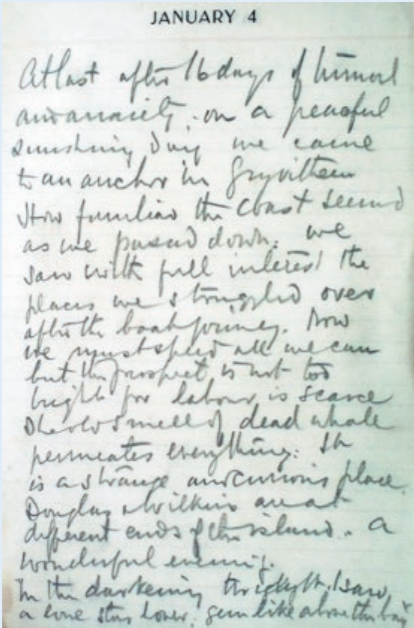 JANUARY 4
At last after 16 days of turmoil
and anxiety: on a peaceful
sunshiny day we came
to an anchor in Gryvitken
How familiar the coast seemed
as we passed down: we
saw with full interest the
places we struggled over
after the boat journey. Now
we must speed all we can
but the prospect is not too
bright for labour is scarce
The old smell of dead whale
permeates everything: It
is a strange and curious place.
Douglas & Wilkins are at
different ends of the island. A
wonderful evening.
In the darkening twilight I saw
a lone star hover: gem like above the bay